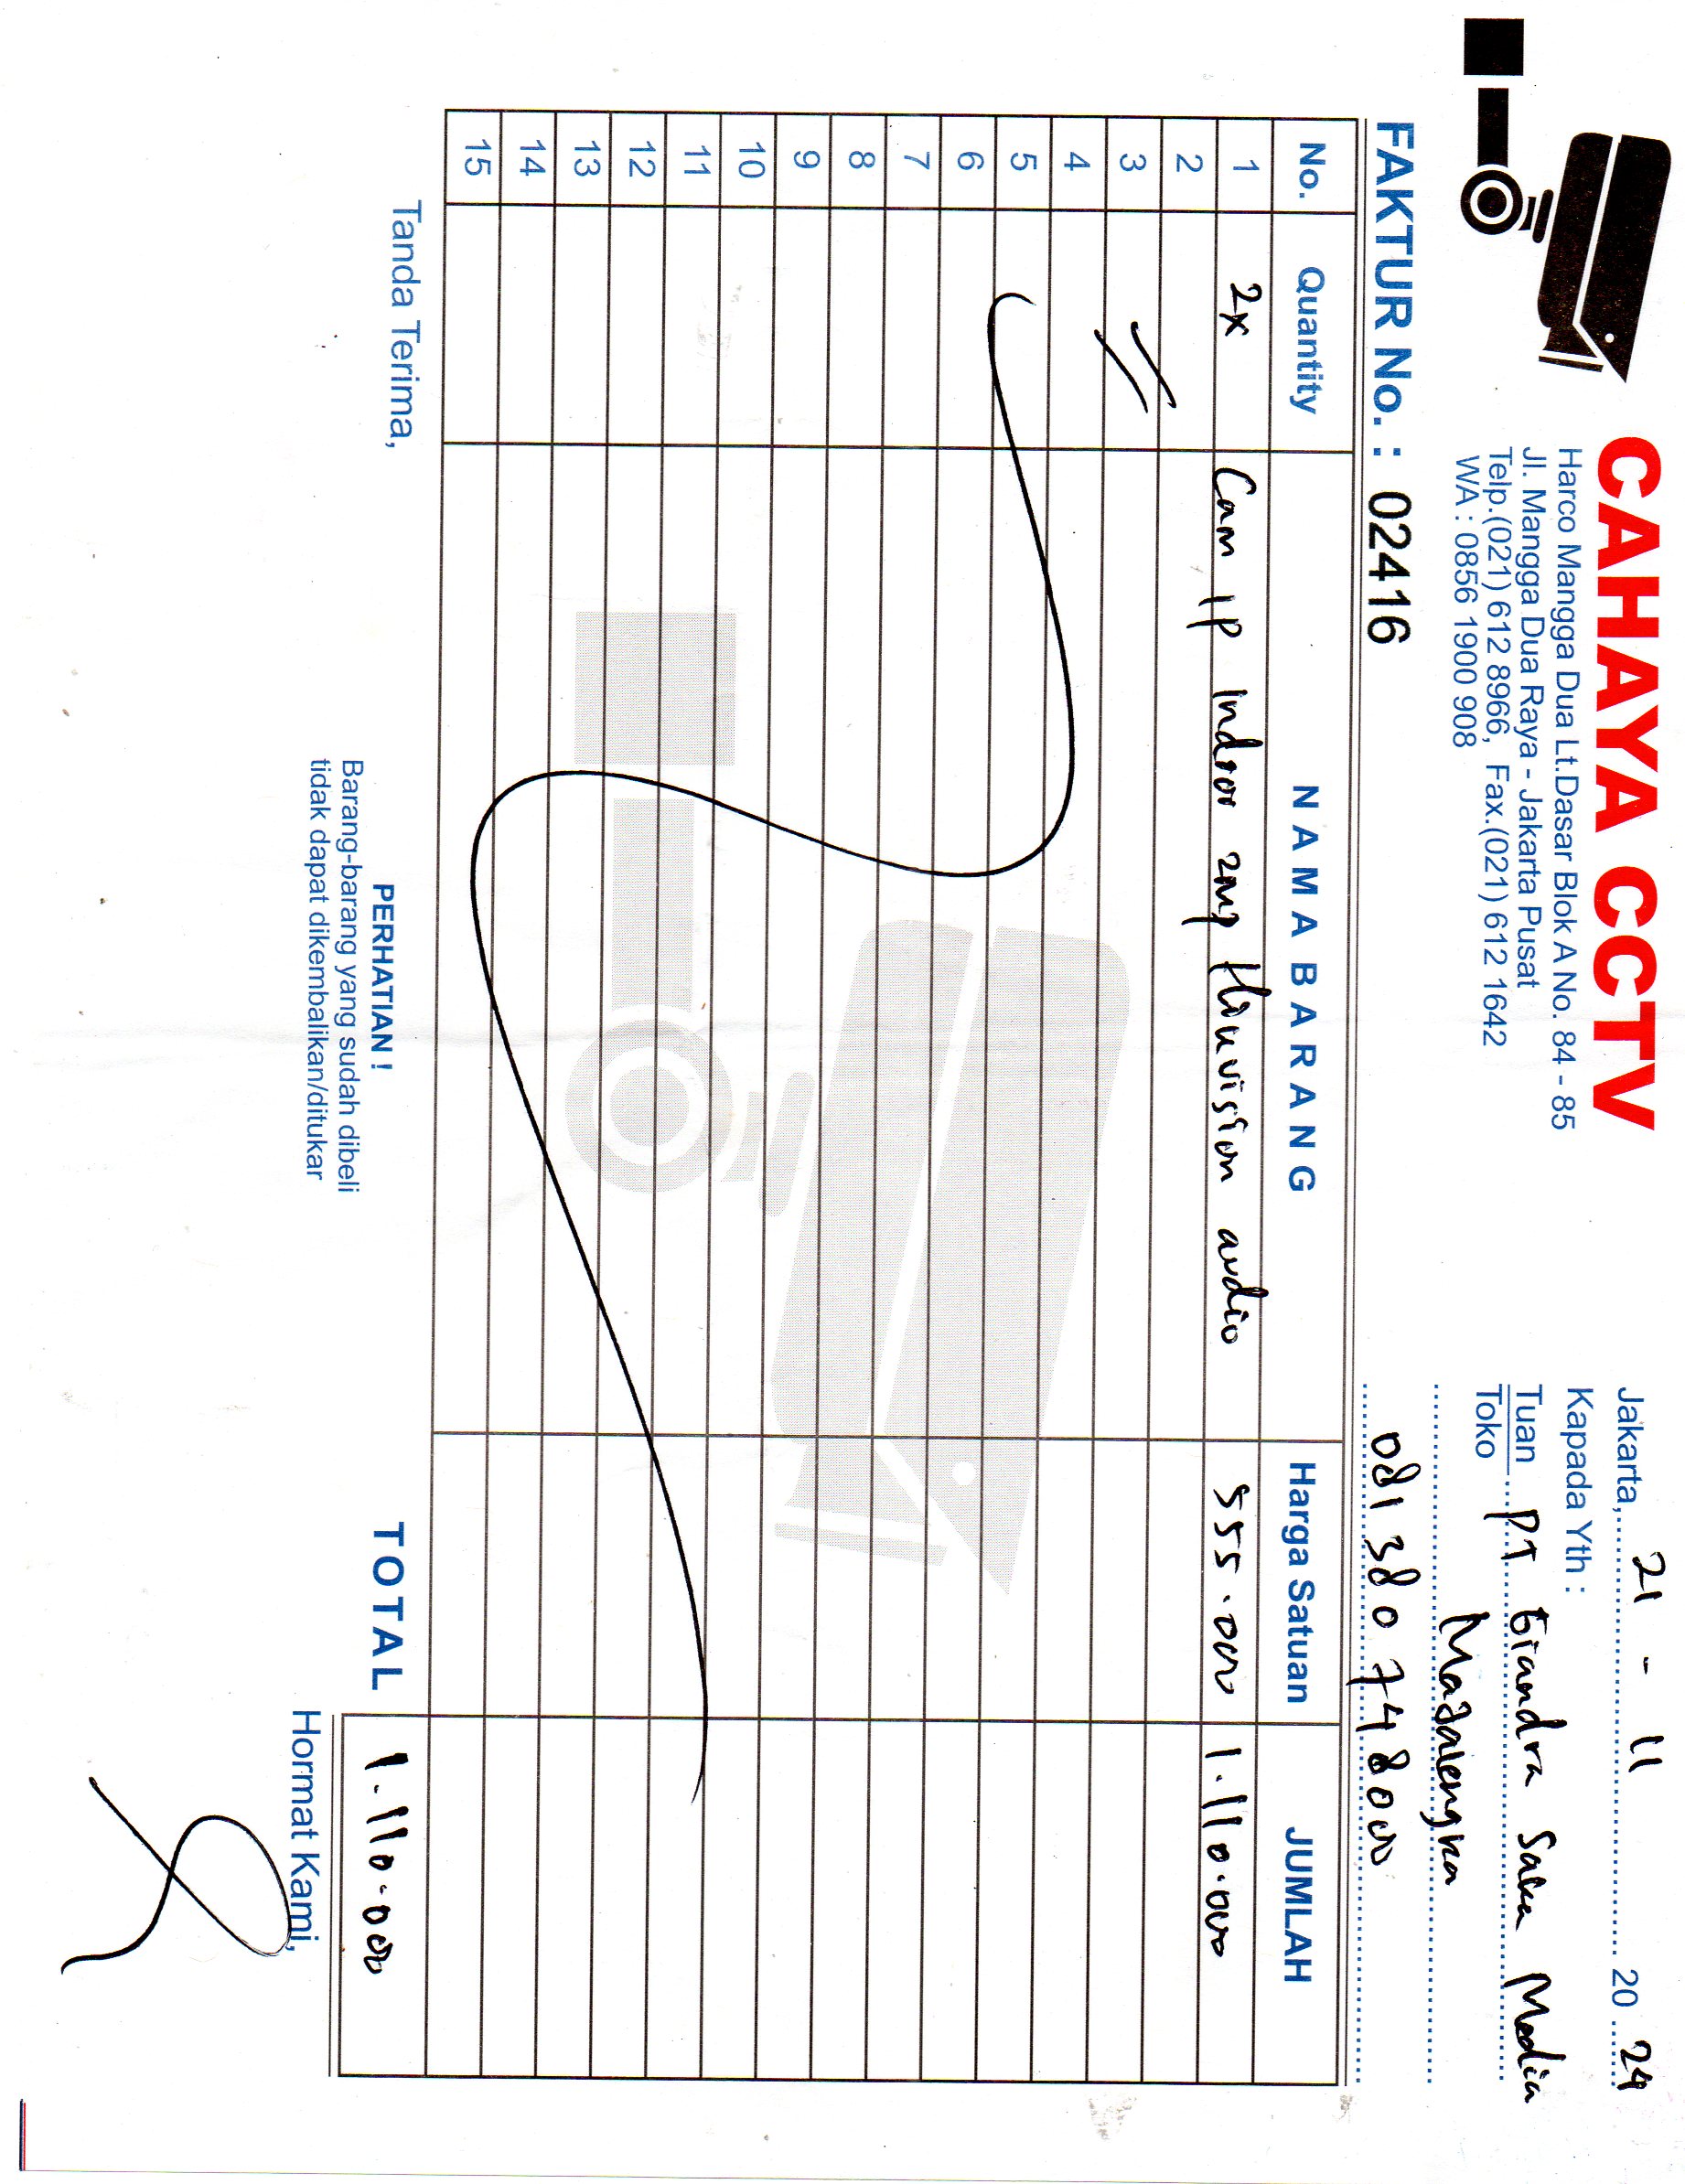 CAHAYA CCTV
Harco Mangga Dua Lt.Dasar Blok A No. 84 - 85
Jl. Mangga Dua Raya - Jakarta Pusat
Telp.(021) 612 8966, Fax.(021) 612 1642
WA : 0856 1900 908
Jakarta, 21 - 11 20 24
Kapada Yth :
Tuan
Toko
PT Giandra Saka Media
Majalengka
081 380 748000
FAKTUR No. : 02416
No. Quantity NAMA BARANG Harga Satuan JUMLAH
1 2x Cam ip Indoor 2mp Hikvision audio 555.000 1.110.000
2
3
4
5
6
7
8
9
10
11
12
13
14
15
TOTAL 1.110.000
Tanda Terima,
PERHATIAN !
Barang-barang yang sudah dibeli
tidak dapat dikembalikan/ditukar
Hormat Kami,